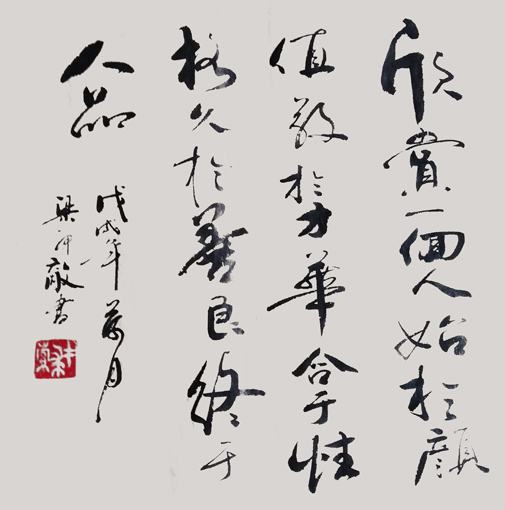 欣賞一個人始於顏
值敬於才華合于性
格久於善良終于
人品
戊戌年月
梁書